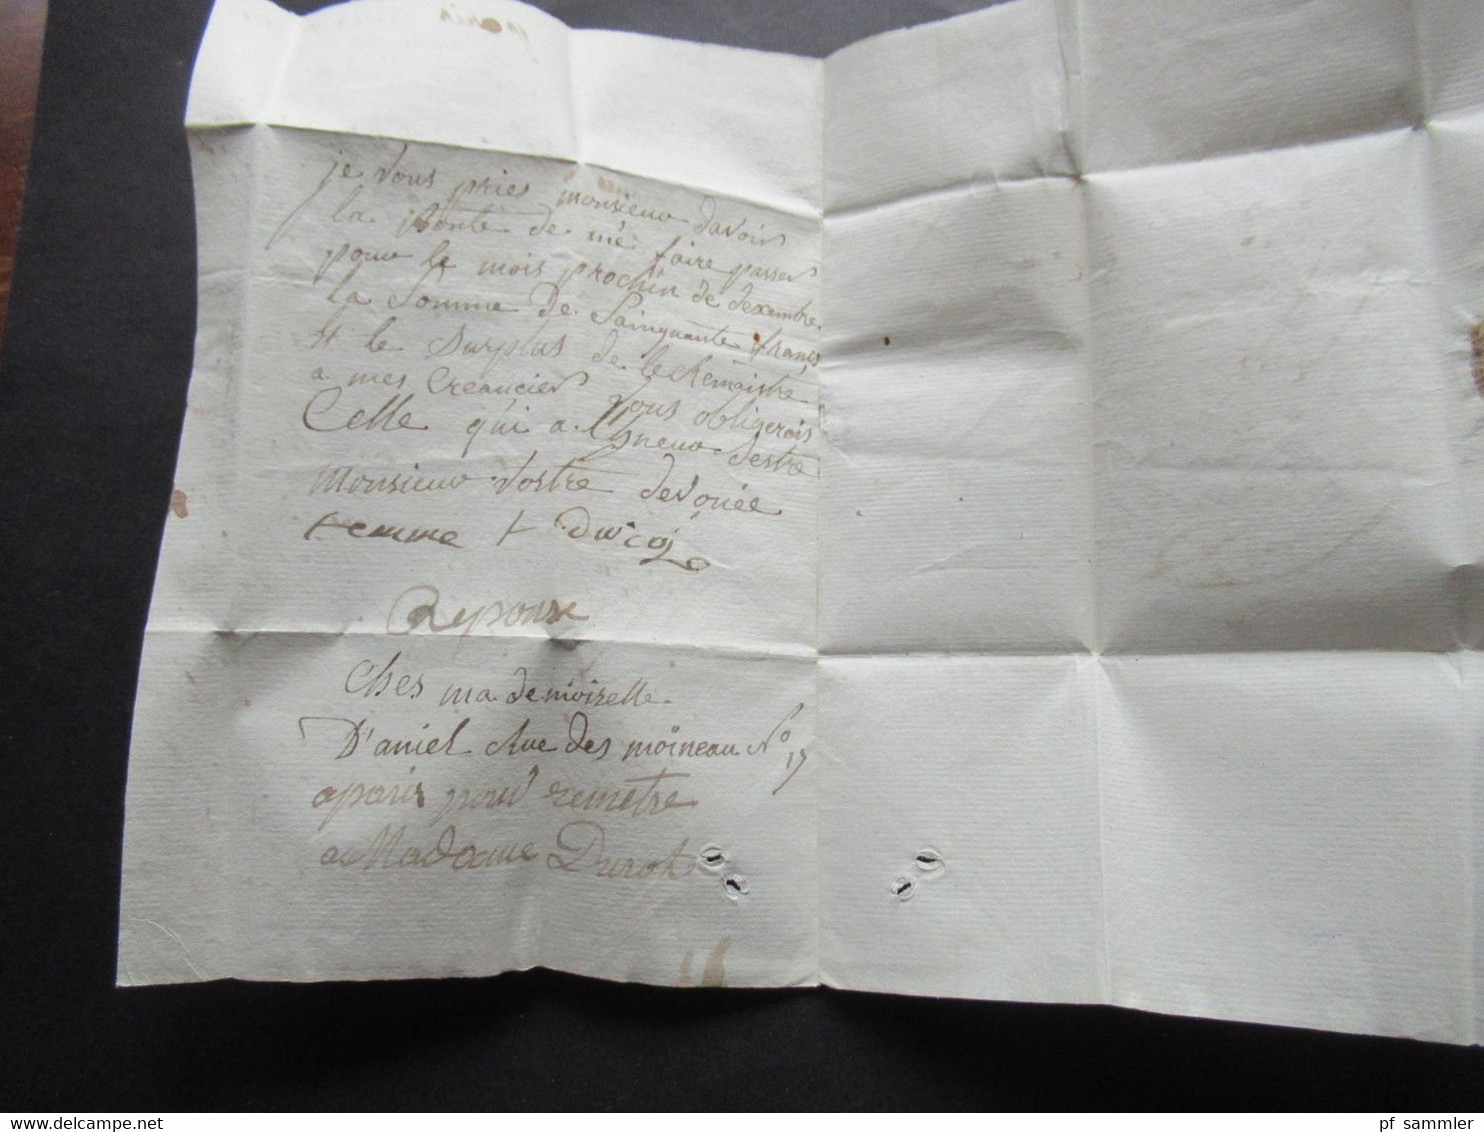 je vous pries monsieur davoir
la Bonté de me faire passer
pour le mois prochin de dexembre
la Somme de Sainquante francs
et le Surplus de le Remaistre
a mes Creanciers vous obligerois
Celle qui a lhneur destre
monsieur vostre devouée
femme
Reponse
Ches ma demoiselle
D'aniel Rue des moineau No 17
a paris pour remetre
a Madame
pf sammler